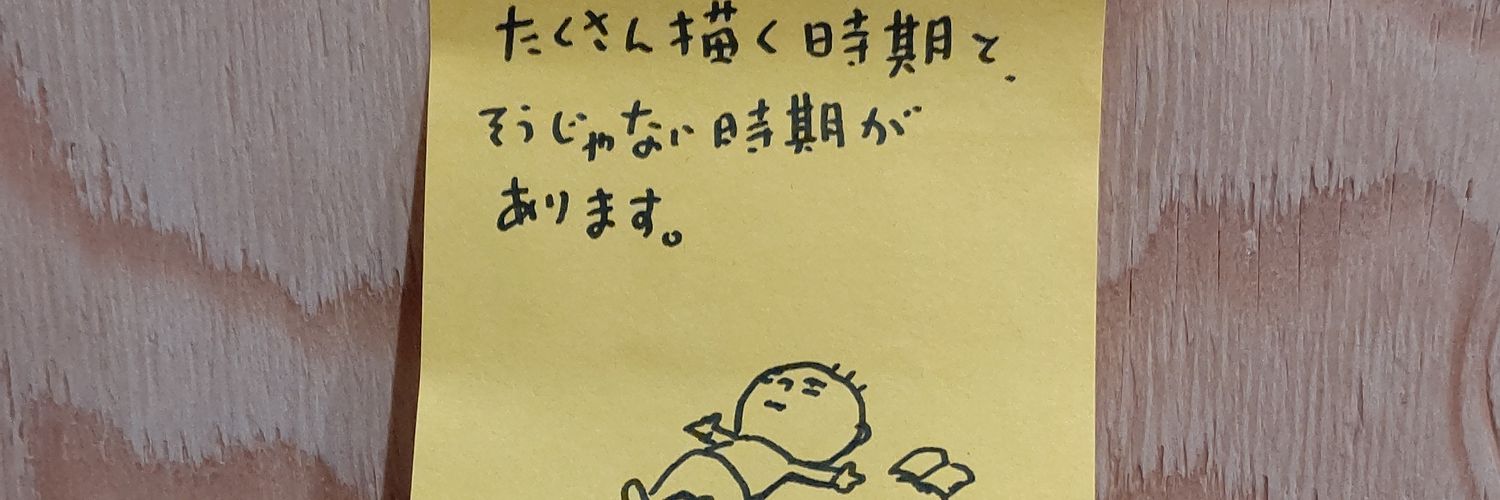 たくさん描く時期と、
そうじゃない時期が
あります。